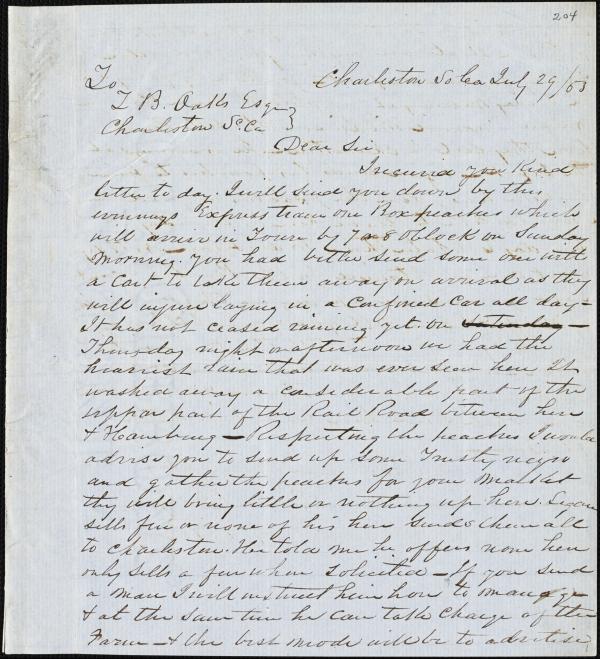 204
Charleston So Ca July 29/53
To
Z B. Oakes Esqr }
Charleston So. Ca
Dear Sir
I received your Kind
letter to day. I will send you down by this
evenings Express train one Box peaches which
will arrive in Town by 7 or 8 Oblock on Sunday
Morning. You had bether send some one with
a Cart to take them away on arrival as they
will injure laying in a confined Car all day –
It has not ceased raining yet. on Saturday –
Thursday night or afternoon we had the
heaviest rain that was ever seen here It
washed away a considerable part of the
uppar part of the Rail Road between here
& Hamburg – Respecting the peaches I would
advise you to send up some Trusty negro
and gather the peaches for your Market
they will bring little or nothing up here.
sells few or none of his here sends them all
to Charleston. He told me he offers none here
only sells a few when solicited – If you send
a man I will instruct him how to manage
& at the same time he can take Charge of the
Farm – & the best mode will be to advertise